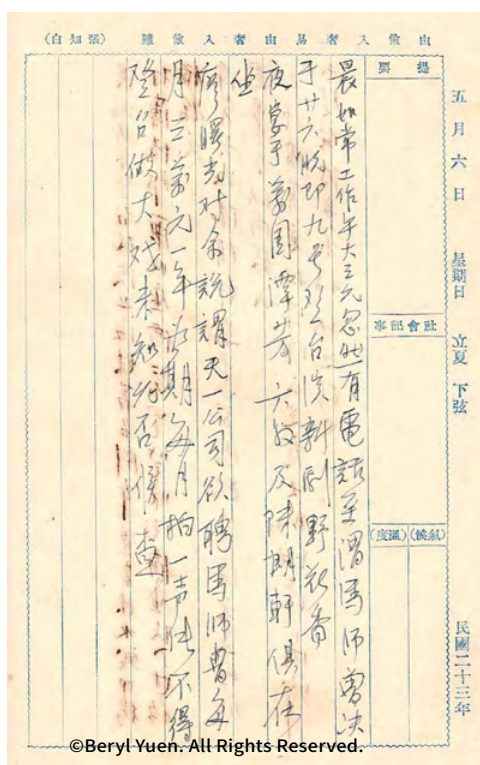 由儉入奢易由奢入儉難（張知白）
提要
五月六日 星期日 立夏 下弦
社會記事
(氣候)(溫度)
民國二十三年
晨如常工作午大三元忽然有電話至謂馬師曾决
于廿六晚即九号登台演新劇野花香
夜宴于萬國潭芳六奴及陳朗軒俱在
坐
廖曙光对余説謂天一公司欲聘馬師曹每
月三萬元一年為期每月拍一声片不得
登台做大戏未知確否候查
©Beryl Yuen. All Rights Reserved.